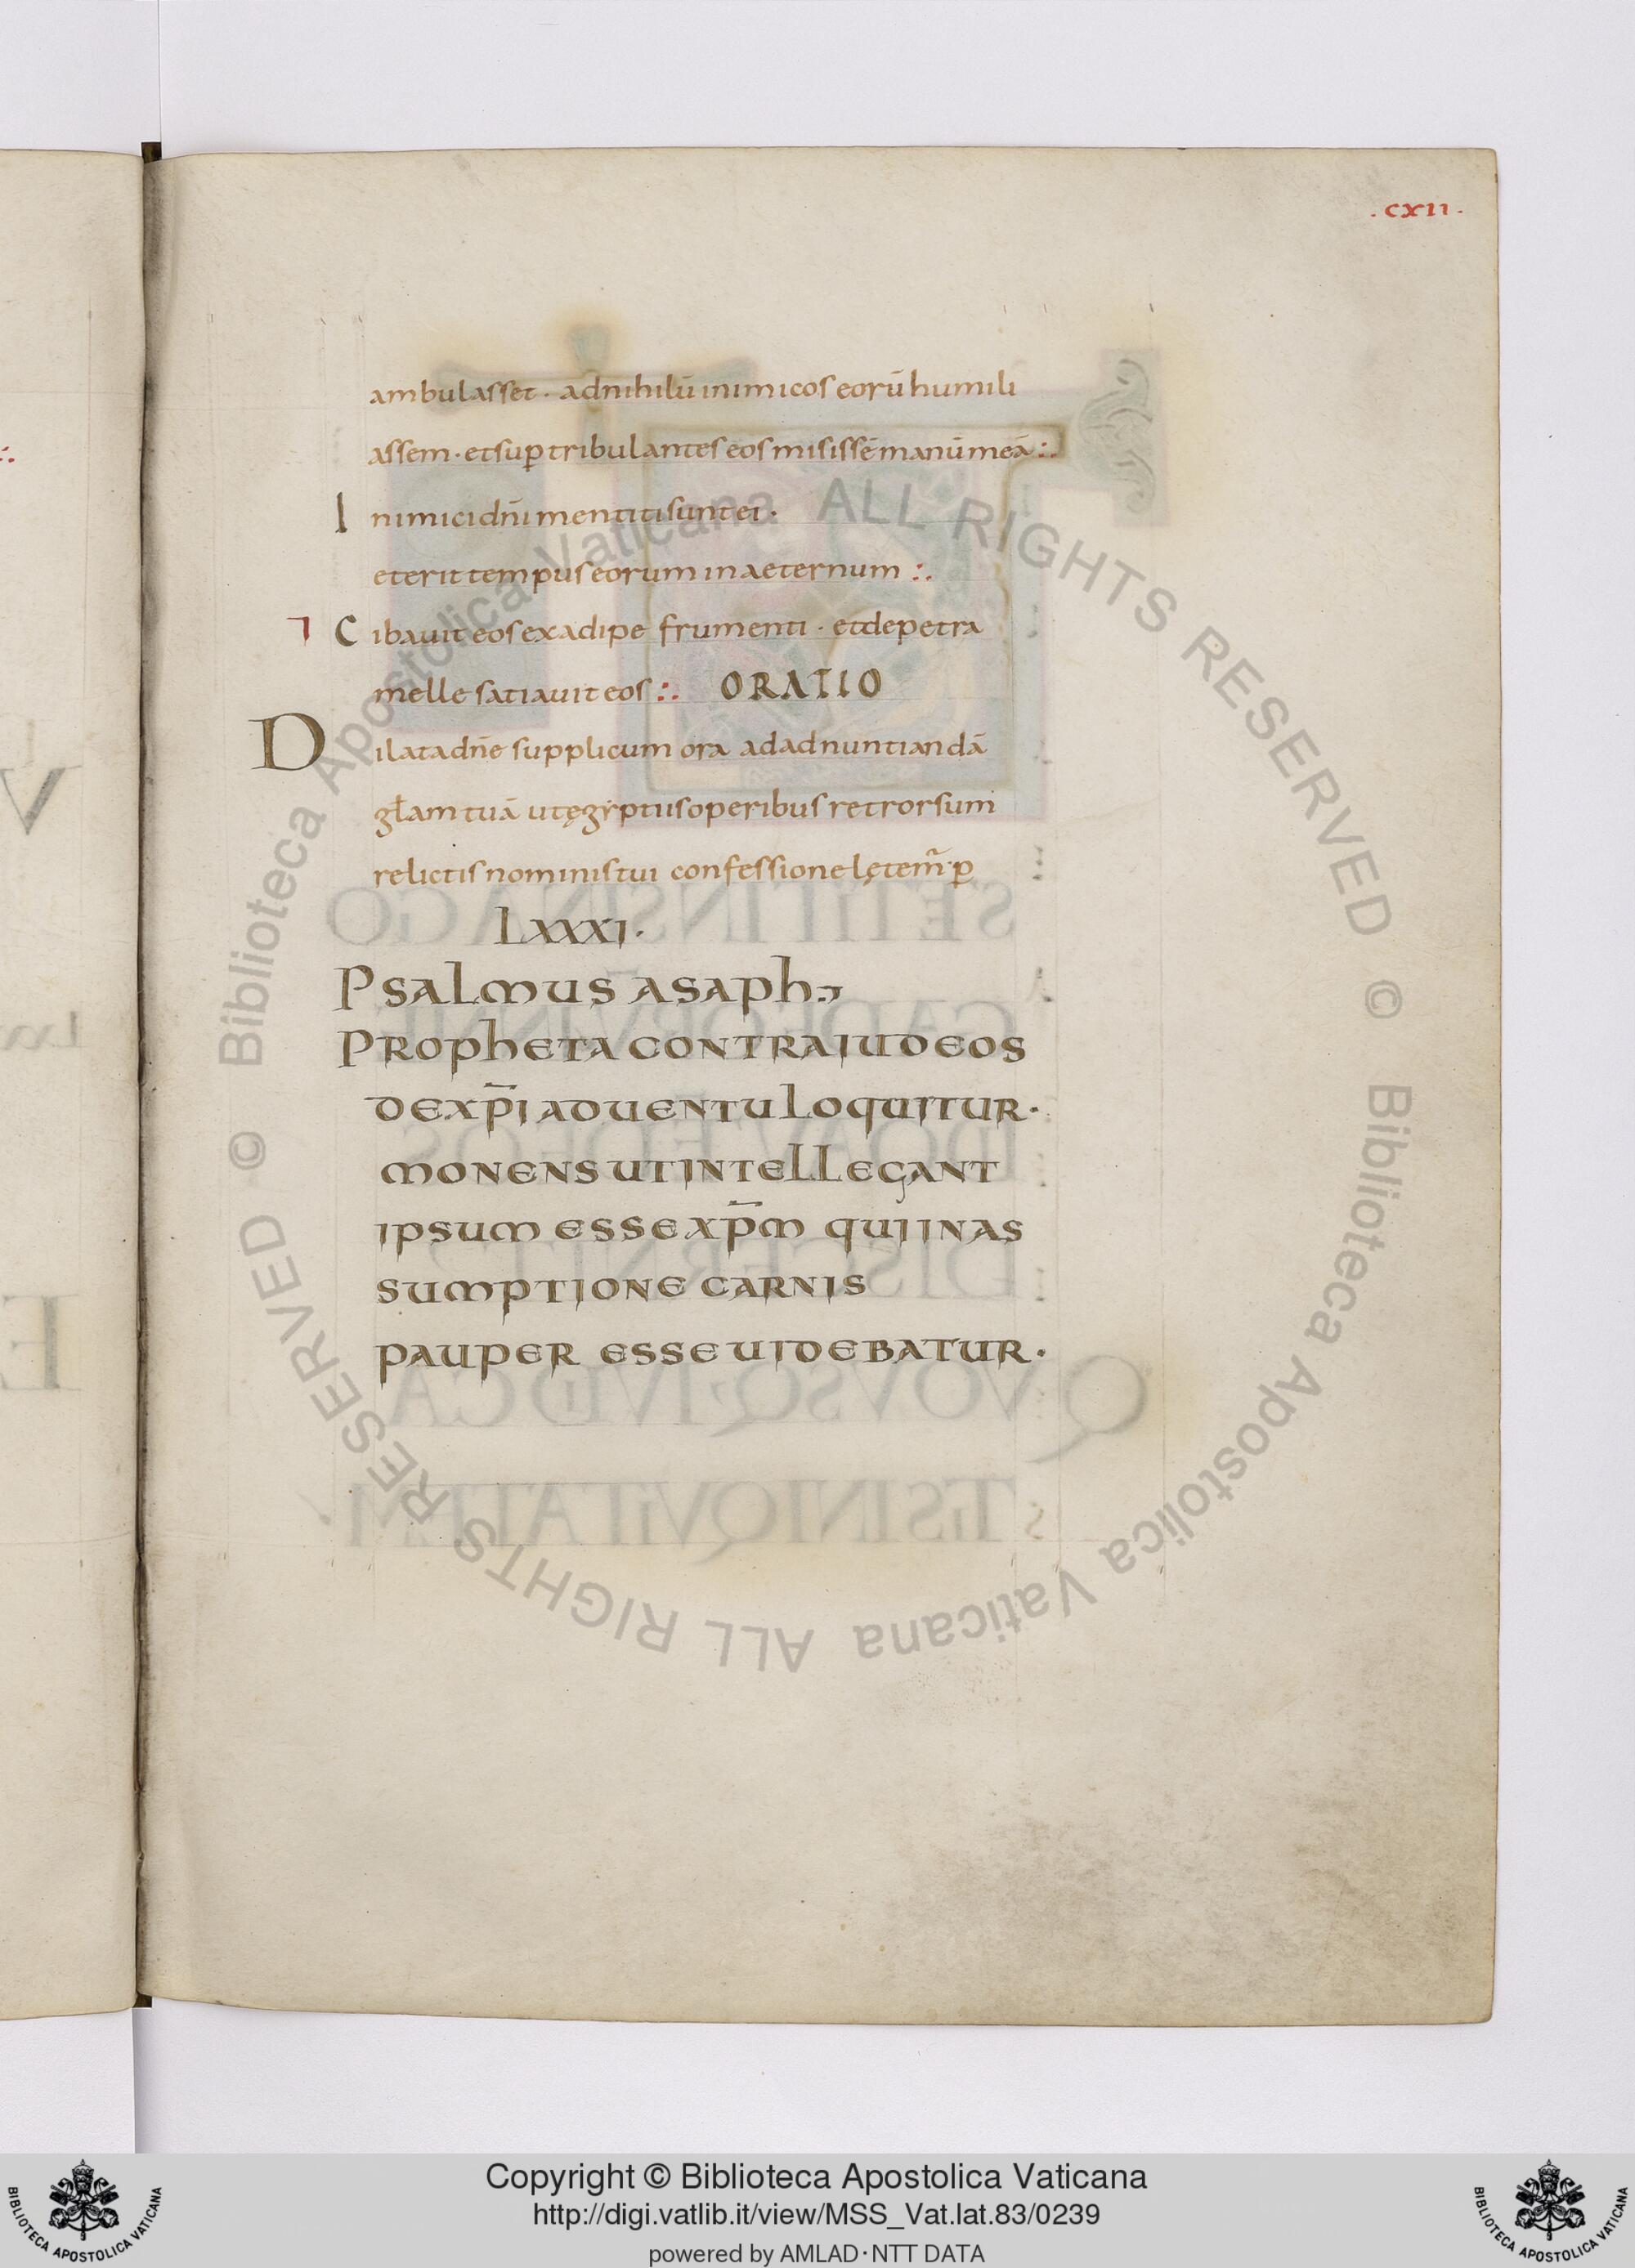 .cxii.
ambulasset · adnihilū inimicos eorū humili
assem · et sup tribulantes eos misissē manū meā :·
Inimici dn̄i mentiti sunt ei ·
et erit tempus eorum in aeternum :·
Cibauit eos ex adipe frumenti · et de petra
melle satiauit eos :· ORATIO
Dilata dn̄e supplicum ora ad adnuntiandā
gl̄am tuā ut ęgyptus operibus retrorsum
relictis nominis tui confessione lętem̄ · p
LXXXI ·
Psalmus asaph
Propheta contra iudeos
de xp̄i aduentu loquitur ·
monens ut intellegant
ipsum esse xp̄m qui in as
sumptione carnis
pauper esse uidebatur ·
Copyright © Biblioteca Apostolica Vaticana
http://digi.vatlib.it/view/MSS_Vat.lat.83/0239
powered by AMLAD·NTT DATA
© Biblioteca Apostolica Vaticana ALL RIGHTS RESERVED
© Biblioteca Apostolica Vaticana ALL RIGHTS RESERVED
BIBLIOTECA APOSTOLICA VATICANA
BIBLIOTECA APOSTOLICA VATICANA